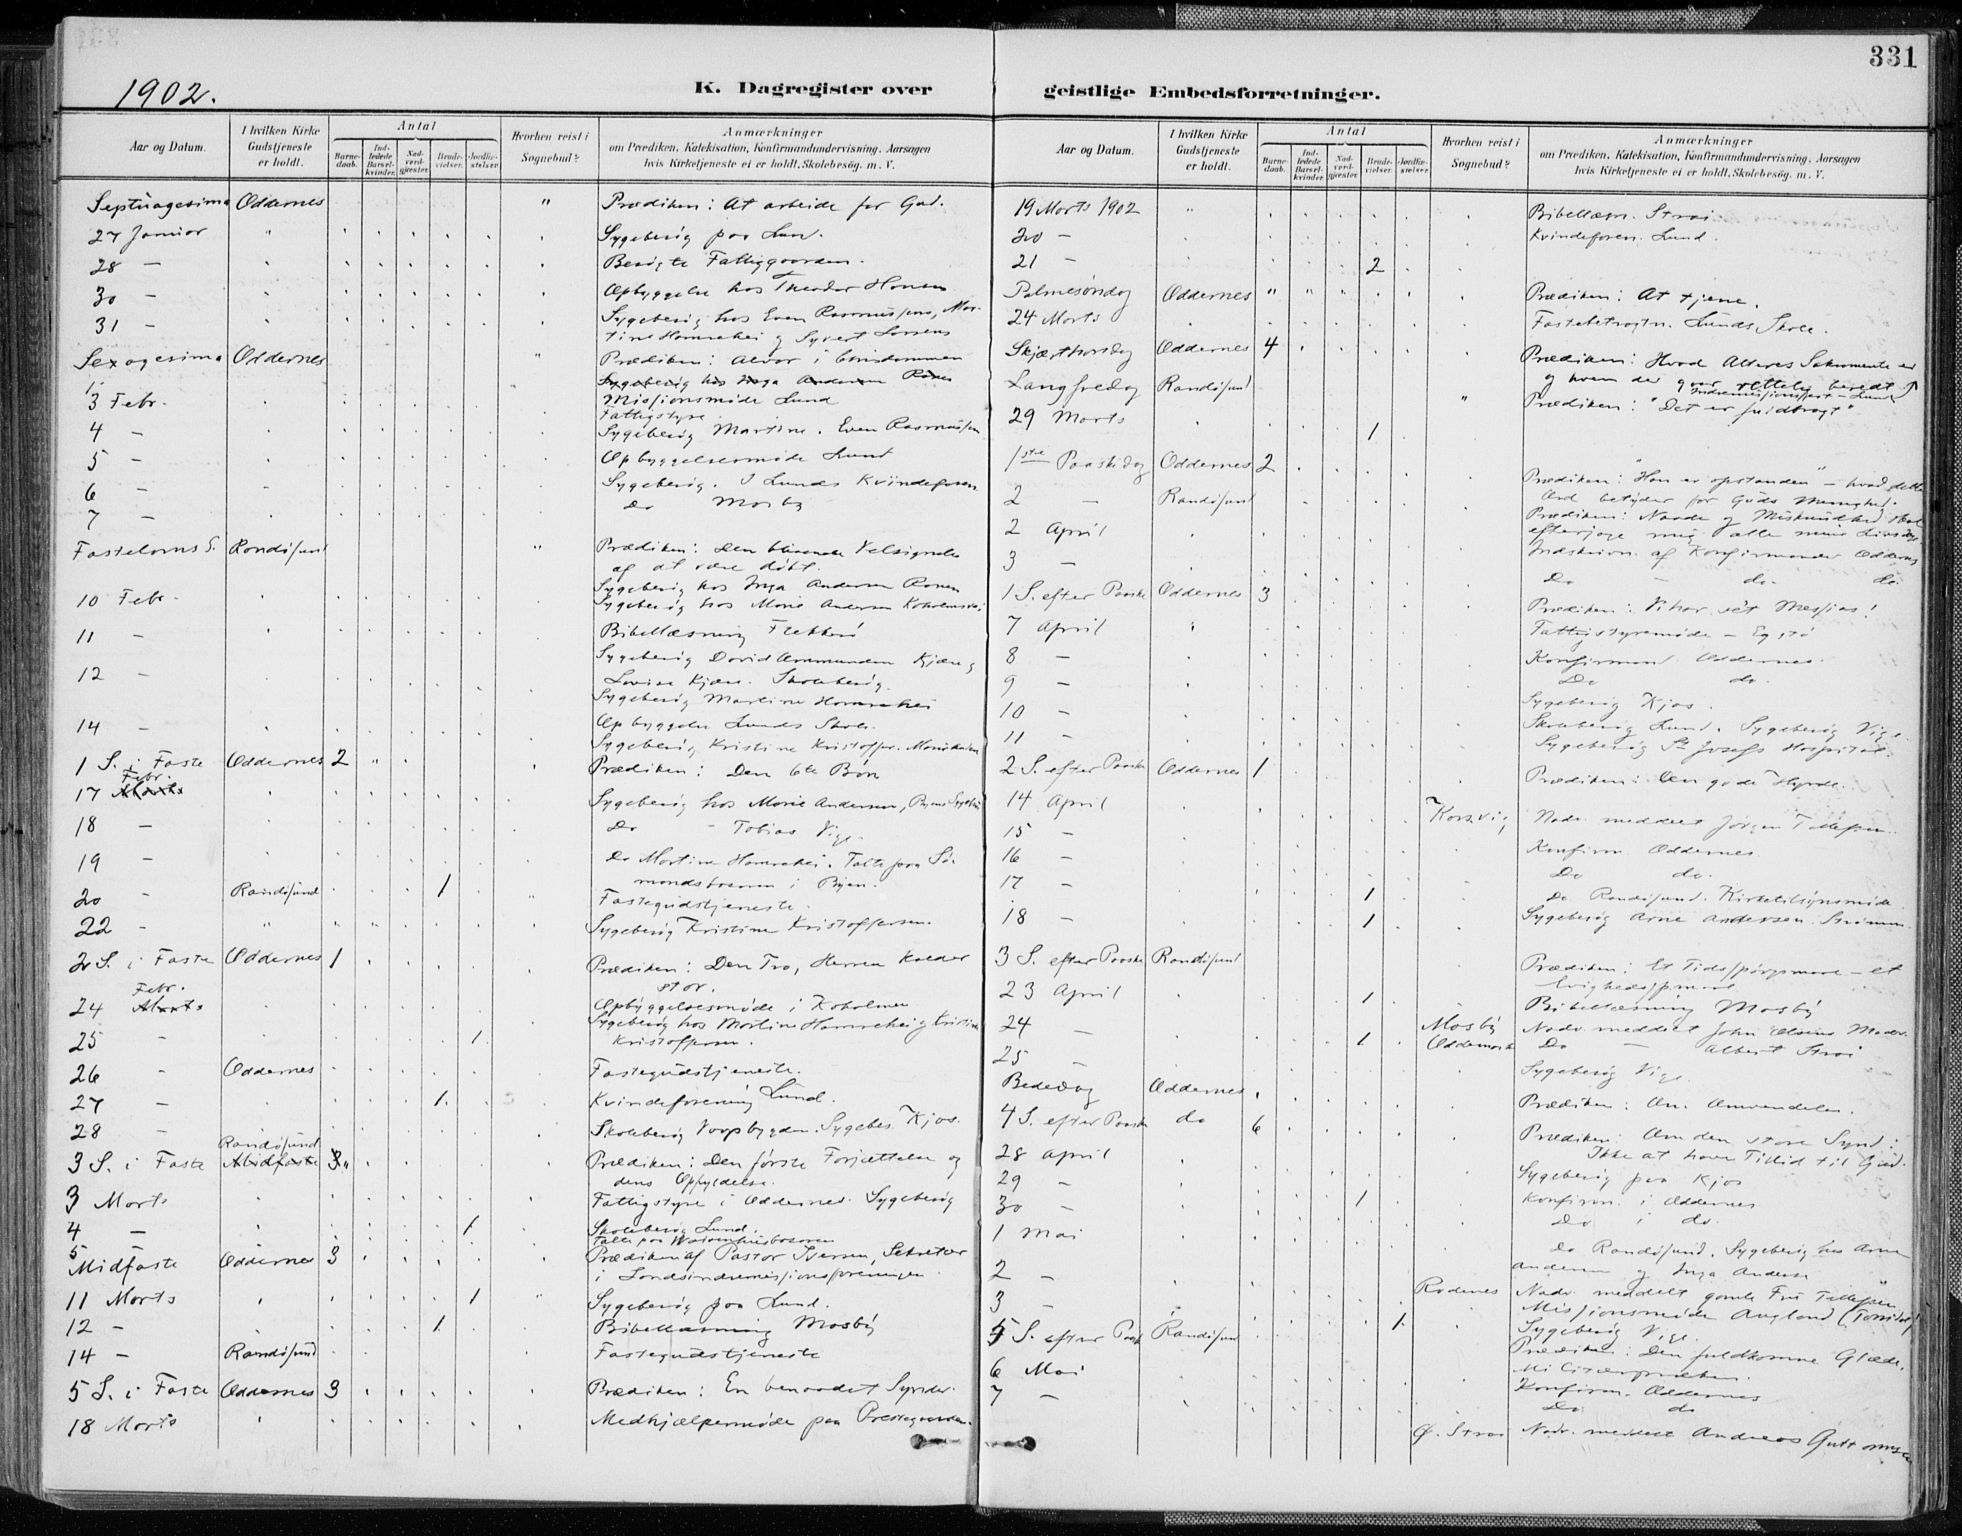 331
1902.
K. Dagregister over geistlige Embedsforretninger.
Aar og Datum. I hvilken Kirke Gudstjeneste er holdt. Antal Barnedaab. Indledede Barselkvinder. Nadverdgjæster. Brudevielser. Jordfæstelser. Hvorhen reist i Sognebud? Anmærkninger om Prædiken, Katekisation, Konfirmandundervisning, Aarsagen hvis Kirketjeneste ei er holdt, Skolebesög. m. V.
Septuagesima Oddernes " Prædiken: At arbeide for Gud.
27 Januar " Sygebesøg paa Lund.
28 — Besøgte Fattiggaarden.
30 — Opbyggelse hos Theodor Hansen
31 — Sygebesøg hos Even Rasmussens, Mar-
tine Hamrehei og Syvert Larsens
Sexagesima Oddernes " Prædiken: Alvor i Christendommen
Sygebesøg hos Inga Andersen Ronen
3 Febr. Missionsmøde Lund
Fattigstyre.
4 — Sygebesøg Martine. Even Rasmussen
5 — Opbyggelsesmøde Lund
6 — Sygebesøg. I Lunds Kvindeforen.
7 — Do Mosby
Fastelavns S. Randøsund " Prædiken: Den blivende Velsignelse
af at være døbt.
Sygebesøg hos Inga Andersen Ronen
10 Febr. Sygebesøg hos Marie Andersen Kokolmsvei
11 — Bibellæsning Flekkerø
Sygebesøg David Ommundsen Kjær og
12 — Lovise Kjær. Skolebesøg.
Sygebesøg Martine Hamrehei
14 — Opbyggelse Lunds Skole.
Sygebesøg Kristine Kristoffer.
1 S. i Faste Oddernes 2 " Prædiken: Den 6te Bøn
Febr.
17 Marts Sygebesøg hos Marie Andersen, Byens Sygehus
18 — Do — Tobias Vige.
19 — Do Martine Hamrehei. Talte paa Sø-
mandsbasaren i Byen.
20 — Randøsund 1 Fastegudstjeneste.
22 — " Sygebesøg Kristine Kristoffersen.
2 S. i Faste Oddernes 1 Prædiken: Den Tro, Herren kalder
stor.
Febr.
24 Marts Opbyggelsesmøde i Kokolmen
Sygebesøg hos Martine Hamrehei og Kristine
25 — 1. Kristoffersen.
26 — Oddernes Fastegudstjeneste.
27 — 1. Kvindeforening Lund.
28 — Skolebesøg Voopbygden. Sygebes. Kjos.
Randøsund
3 S. i Faste Midfaste 3 " Prædiken: Den første Forjættelse og
dens Opfyldelse.
3 Marts Fattigstyre i Oddernes. Sygebesøg
4 — 1 Skolebesøg Lund.
5 Talte paa Waisenhusbasaren
Midfaste Oddernes 3 Prædiken af Pastor Iversen, Sekretær
i Landsindremissionsforeningen.
11 Marts 1 " Sygebesøg paa Lund.
12 — 1. Bibellæsning Mosby
14 — Randøsund Fastegudstjeneste
5 S. i Faste Oddernes 3 Prædiken: En benaadet Synder.
18 Marts Medhjælpermøde paa Prestegaarden.
Aar og Datum. I hvilken Kirke Gudstjeneste er holdt. Antal Barnedaab. Indledede Barselkvinder. Nadverdgjæster. Brudevielser. Jordfæstelser. Hvorhen reist i Sognebud? Anmærkninger om Prædiken, Katekisation, Konfirmandundervisning, Aarsagen hvis Kirketjeneste ei er holdt, Skolebesög. m. V.
19 Marts 1902 " Bibellæsn. Strai
20 — Kvindeforen. Lund.
21 — 2
Palmesøndag Oddernes " " " Prædiken: At tjene.
24 Marts Fastebetragtn. Lunds Skole.
Skjærthorsdag Oddernes 4 Prædiken: Hvad Alterets Sakramente er
og hvem der gaar rettelig beredt.
Langfredag Randøsund Indremissionsfest – Lund
29 Marts 1 " Prædiken: "Det er fuldbragt"
1ste Paaskedag Oddernes 2 Prædiken: "Han er opstanden" – hvad dette
2 — Randøsund Ord betyder for Guds Menighed.
Prædiken: Naade og Miskundhed skal
2 April efterjage mig alle mine Livsdage
3 — Indskrivn. af Konfirmander Oddernes
Do — do. do.
1 S. efter Paaske Oddernes 3 Prædiken: Vi har set Messias!
7 April Fattigstyremøde – Egstø
8 — Konfirmand. Oddernes.
9 — Do do.
10 — Sygebesøg Kjos.
11 — Skolebesøg Lund. Sygebesøg Vige.
Sygebesøg St Josefs Hospital.
2 S. efter Paaske Oddernes 1 Prædiken: Den gode Hyrde.
14 April Korsvig Nadv. meddelt Jørgen Tellefsen.
15 — Konfirm Oddernes.
16 — Do do.
17 — 1 Do Randøsund. Kirketilsynsmøde
18 — 1 Sygebesøg Arne Andersen Strømme.
3 S. efter Paaske Randøsund Prædiken: Et Tidsspørgsmaal – et
Evighedsspmaal
23 April 1 Bibellæsning Mosby
24 — Mosby Nadv. meddelt John
1. Oddemark Do — Albert Strai
25 — Sygebesøg Vige
Bededag Oddernes Prædiken: Om Omvendelse.
4 S. efter Paaske do 6 Prædiken: Om den store Synd:
Ikke at have Tillid til Gud.
28 April Sygebesøg paa Kjos
29 — Konfirm. i Oddernes
30 — 1 Do i do.
1 Mai Do Randøsund. Sygebesøg hos Arne
Andersen og Inga Andersen
2 — Rødenes Nadv. meddelt gamle Fru Tellefsen
3 — Missionsmøde Augland (Torridal)
1. Sygebesøg Vige.
5 S. efter Paaske Randøsund Prædiken: Den fuldkomne Glæde.
6 Mai Militærprækn.
7 — Konfirm. Oddernes
Do do
Ø. Strai Nadv. meddelt Andreas Guttormsen